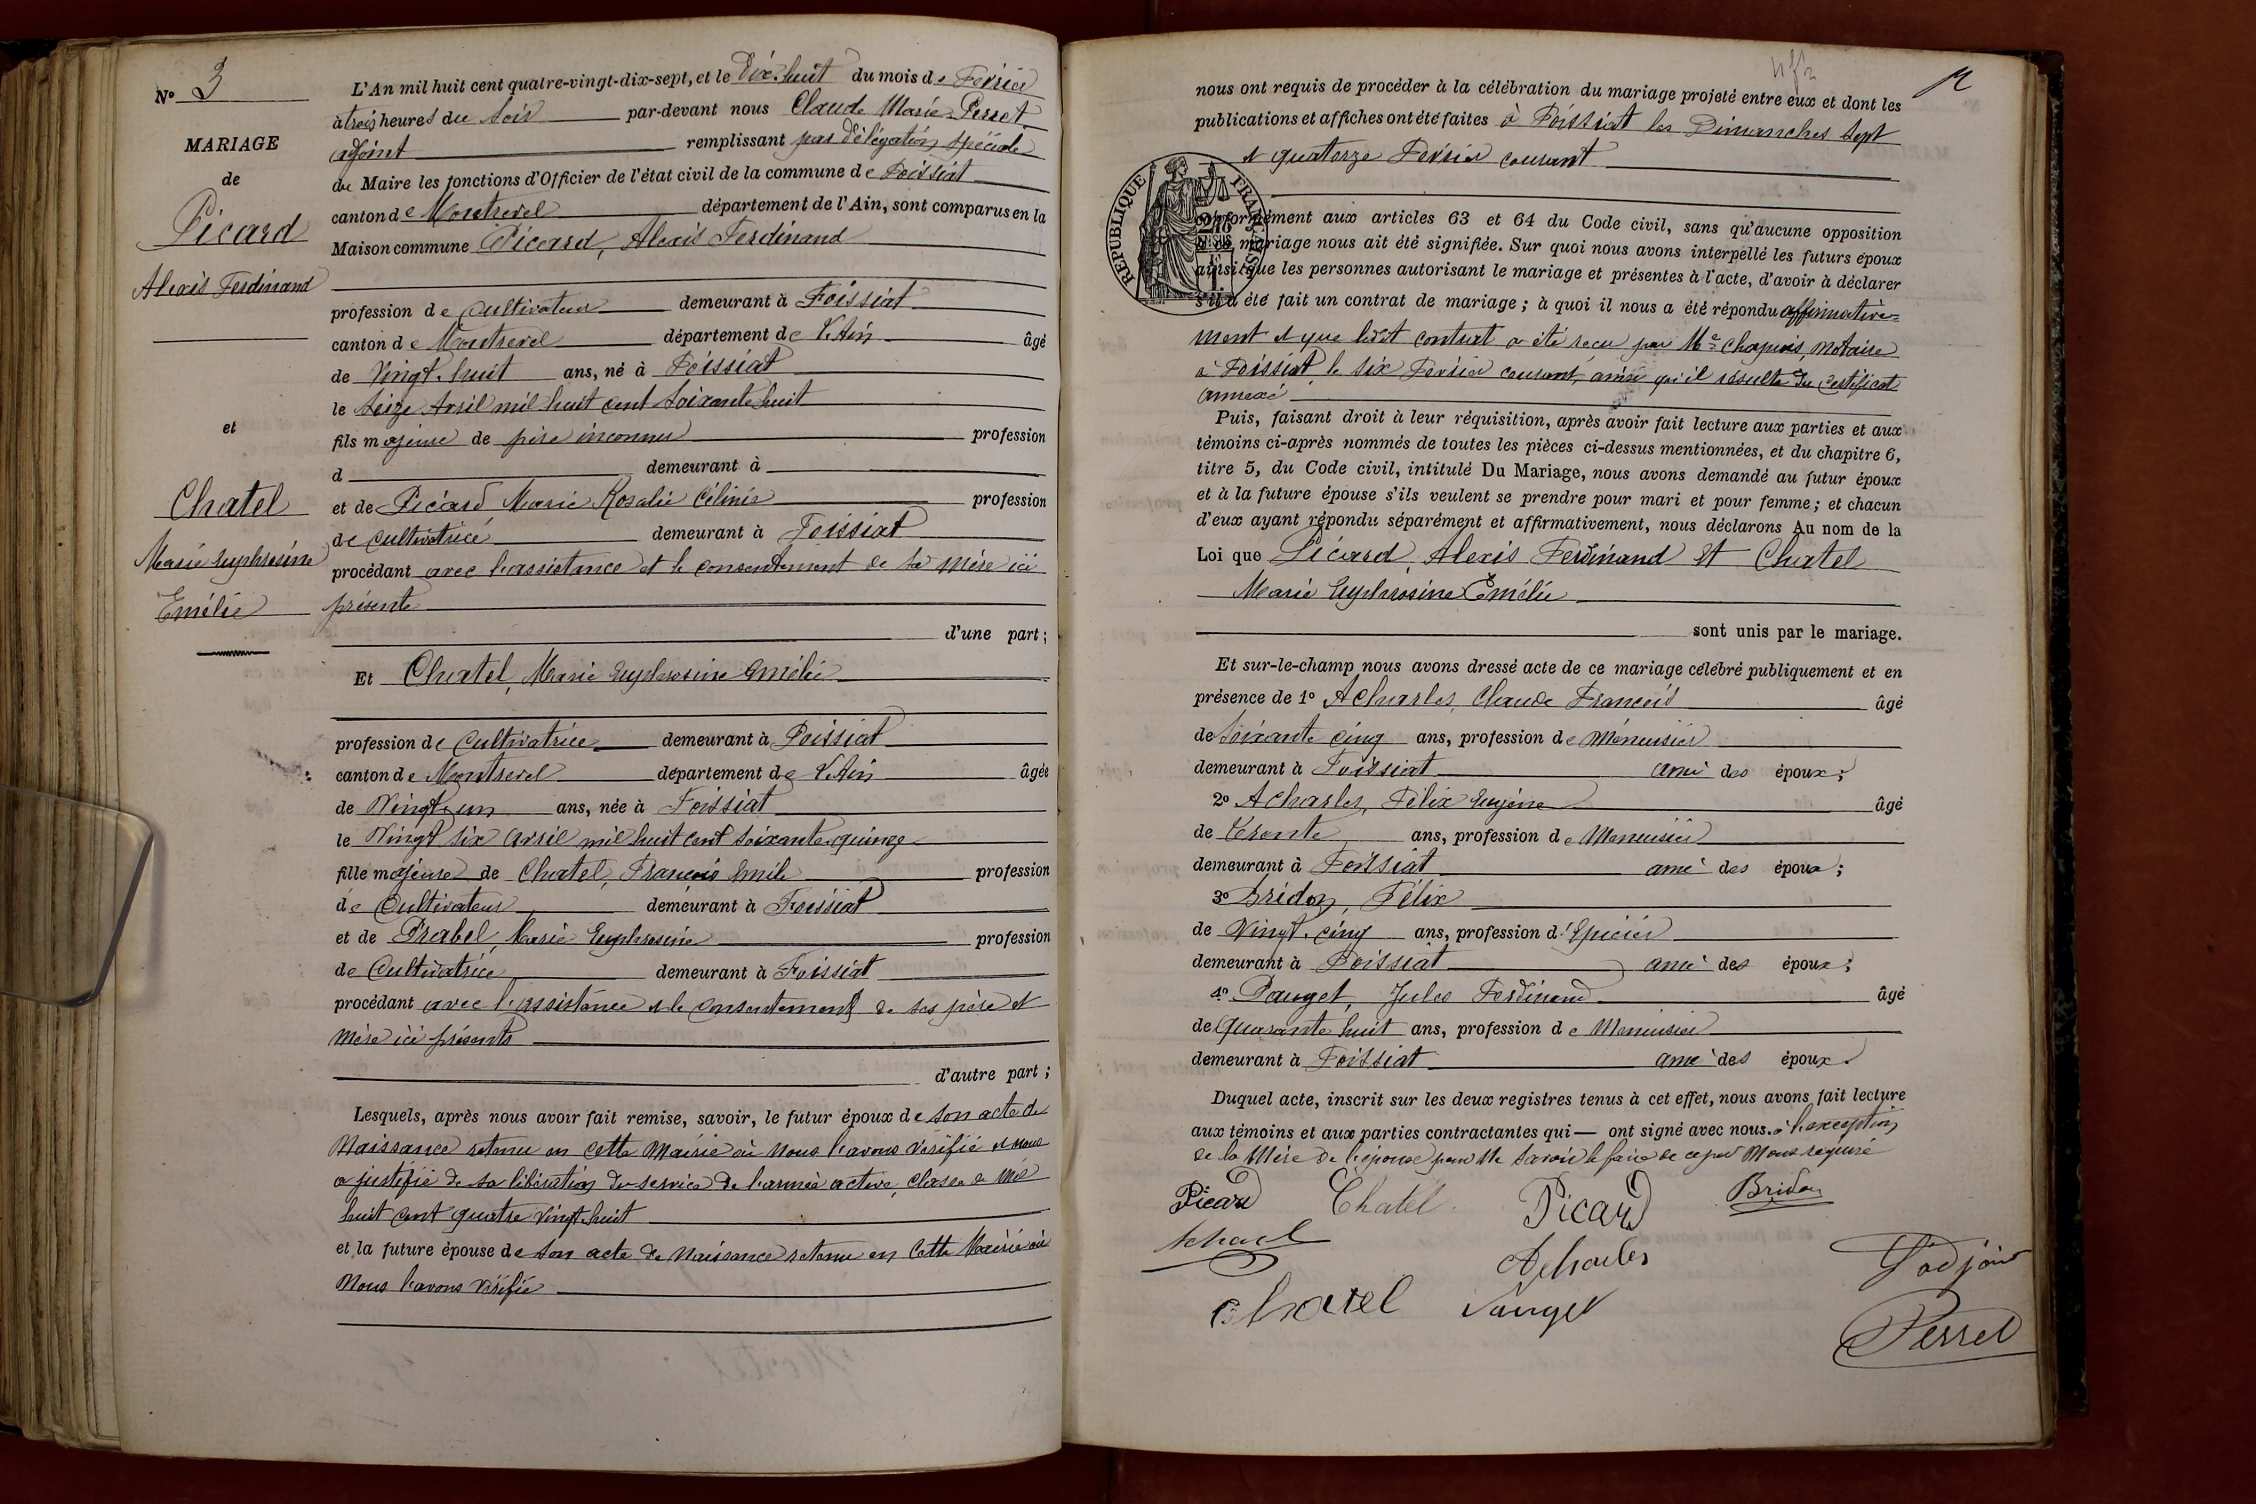 N° 3
MARIAGE
de
Picard
Alexis Ferdinand
et
Chatel
Marie Euphrosine
Emélie
L'An mil huit cent quatre-vingt-dix-sept, et le Dix-huit du mois de Février
à trois heures du soir par-devant nous Claude Marie Perret
adjoint remplissant par délégation spéciale
du Maire les fonctions d'Officier de l'état civil de la commune de Foissiat
canton de Montrevel département de l'Ain, sont comparus en la
Maison commune Picard, Alexis Ferdinand
profession de cultivateur demeurant à Foissiat
canton de Montrevel département de l'Ain âgé
de Vingt-huit ans, né à Foissiat
le Seize Avril mil huit cent soixante huit
fils majeur de père inconnu profession
d demeurant à
et de Picard Marie Rosalie Célinie profession
de cultivatrice demeurant à Foissiat
procédant avec l'assistance et le consentement de sa mère ici
présente
d'une part;
Et Chatel, Marie Euphrosine Emélie
profession de Cultivatrice demeurant à Foissiat
canton de Montrevel département de l'Ain âgée
de Vingt-un ans, née à Foissiat
le Vingt six avril mil huit cent soixante-quinze
fille majeure de Chatel, François Emile profession
de Cultivateur demeurant à Foissiat
et de Prabel, Marie Euphrosine profession
de Cultivatrice demeurant à Foissiat
procédant avec l'assistance et le consentement de ses père et
mère ici présents
d'autre part;
Lesquels, après nous avoir fait remise, savoir, le futur époux de son acte de
Naissance retenu en cette Mairie où nous l'avons vérifié et nous
a justifié de sa libération du service de l'armée active, classe de mil
huit cent quatre vingt-huit
et la future épouse de son acte de naissance retenu en cette Mairie où
nous l'avons vérifié
nous ont requis de procéder à la célébration du mariage projeté entre eux et dont les
publications et affiches ont été faites à Foissiat les Dimanches sept
et quatorze Février courant
RÉPUBLIQUE FRANÇAISE
conformément aux articles 63 et 64 du Code civil, sans qu'aucune opposition
à ce mariage nous ait été signifiée. Sur quoi nous avons interpellé les futurs époux
ainsi que les personnes autorisant le mariage et présentes à l'acte, d'avoir à déclarer
s'il a été fait un contrat de mariage; à quoi il nous a été répondu affirmative-
ment et que ledit contrat a été reçu par Me Chapuis, notaire
à Foissiat, le six Février courant, ainsi qu'il résulte du certificat
annexé
Puis, faisant droit à leur réquisition, après avoir fait lecture aux parties et aux
témoins ci-après nommés de toutes les pièces ci-dessus mentionnées, et du chapitre 6,
titre 5, du Code civil, intitulé Du Mariage, nous avons demandé au futur époux
et à la future épouse s'ils veulent se prendre pour mari et pour femme; et chacun
d'eux ayant répondu séparément et affirmativement, nous déclarons Au nom de la
Loi que Picard, Alexis Ferdinand et Chatel
Marie Euphrosine Emélie
sont unis par le mariage.
Et sur-le-champ nous avons dressé acte de ce mariage célébré publiquement et en
présence de 1° Acharles, Claude François âgé
de Soixante cinq ans, profession de Menuisier
demeurant à Foissiat ami des époux;
2° Acharles, Félix Eugène âgé
de Trente ans, profession de Menuisier
demeurant à Foissiat ami des époux;
3° Bridon, Félix
de Vingt-cinq ans, profession d'Epicier
demeurant à Foissiat ami des époux;
4° Pauget, Jules Ferdinand âgé
de Quarante huit ans, profession de Menuisier
demeurant à Foissiat ami des époux
Duquel acte, inscrit sur les deux registres tenus à cet effet, nous avons fait lecture
aux témoins et aux parties contractantes qui — ont signé avec nous. à l'exception
de la Mère de l'épouse pour ne savoir le faire de ce par nous requise
Picard Chatel Picard Bridon
Acharles L'adjoint
Chatel Pauget
Perret